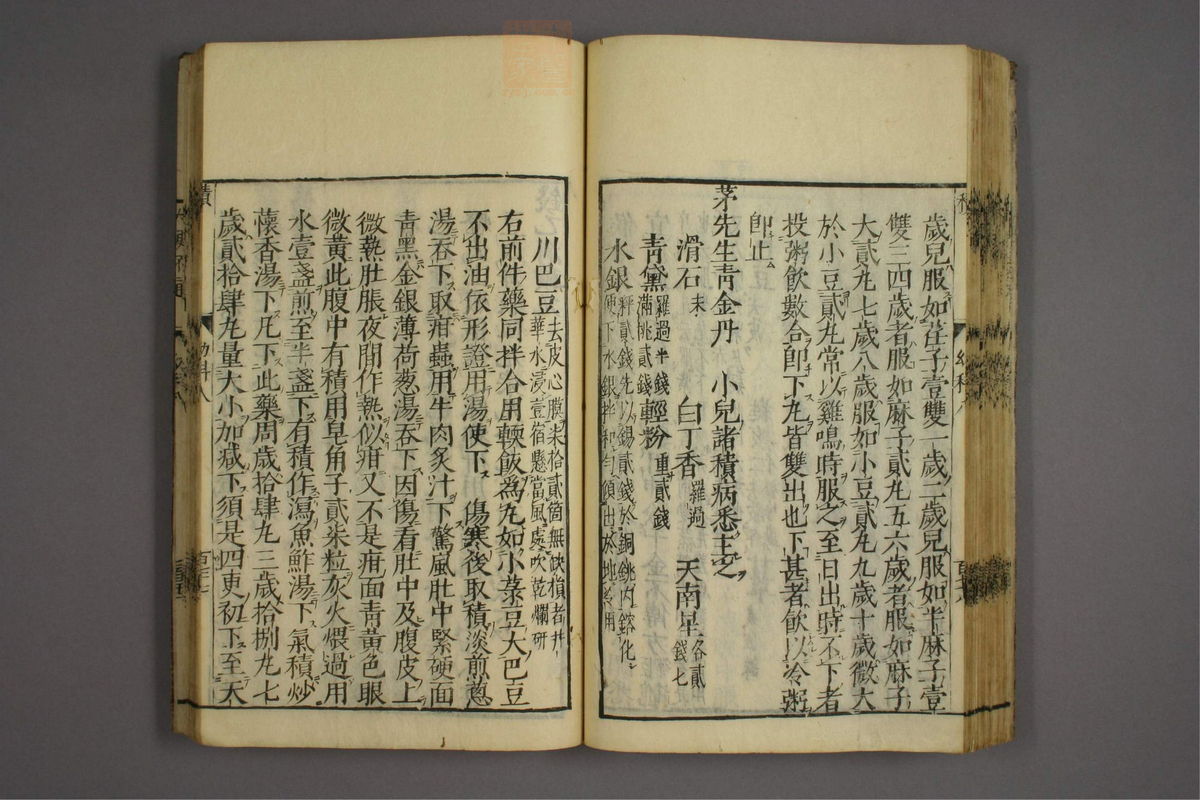 歲兒服如荏子壹雙一歲二歲兒服如半麻子壹
雙三四歲者服如麻子貳丸五六歲者服如麻子
大貳丸七歲八歲服如小豆貳丸九歲十歲微大
於小豆貳丸常以雞鳴時服之至日出時不下者
投粥飲數合即下丸皆雙出也下甚者飲以冷粥
即止
茅先生青金丹 小兒諸積病悉主之
滑石末 白丁香羅過 天南星各貳錢七
青黛羅過半錢滿挑貳錢 輕粉重貳錢
水銀秤貳錢先以錫貳錢於銅銚內鎔化便下水銀拌和勻傾出於地著用
川巴豆去皮心膜柒拾貳箇無缺損者井華水浸壹宿懸當風處吹乾爛研
右前件藥同拌合用輭飯為丸如小菉豆大巴豆
不出油依形證用湯使下 傷寒後取積淡煎蔥
湯吞下取疳蟲用牛肉炙汁下驚風肚中緊硬面
青黑金銀薄荷蔥湯吞下因傷看肚中及腹皮上
微熱肚脹夜間作熱似疳又不是疳面青黃色眼
微黃此腹中有積用皂角子貳柒粒灰火煨過用
水壹盞煎至半盞下有積作瀉魚鮓湯下氣積炒
懷香湯下凡下此藥周歲拾肆丸三歲拾捌丸七
歲貳拾肆丸量大小加減下須是四更初下至天